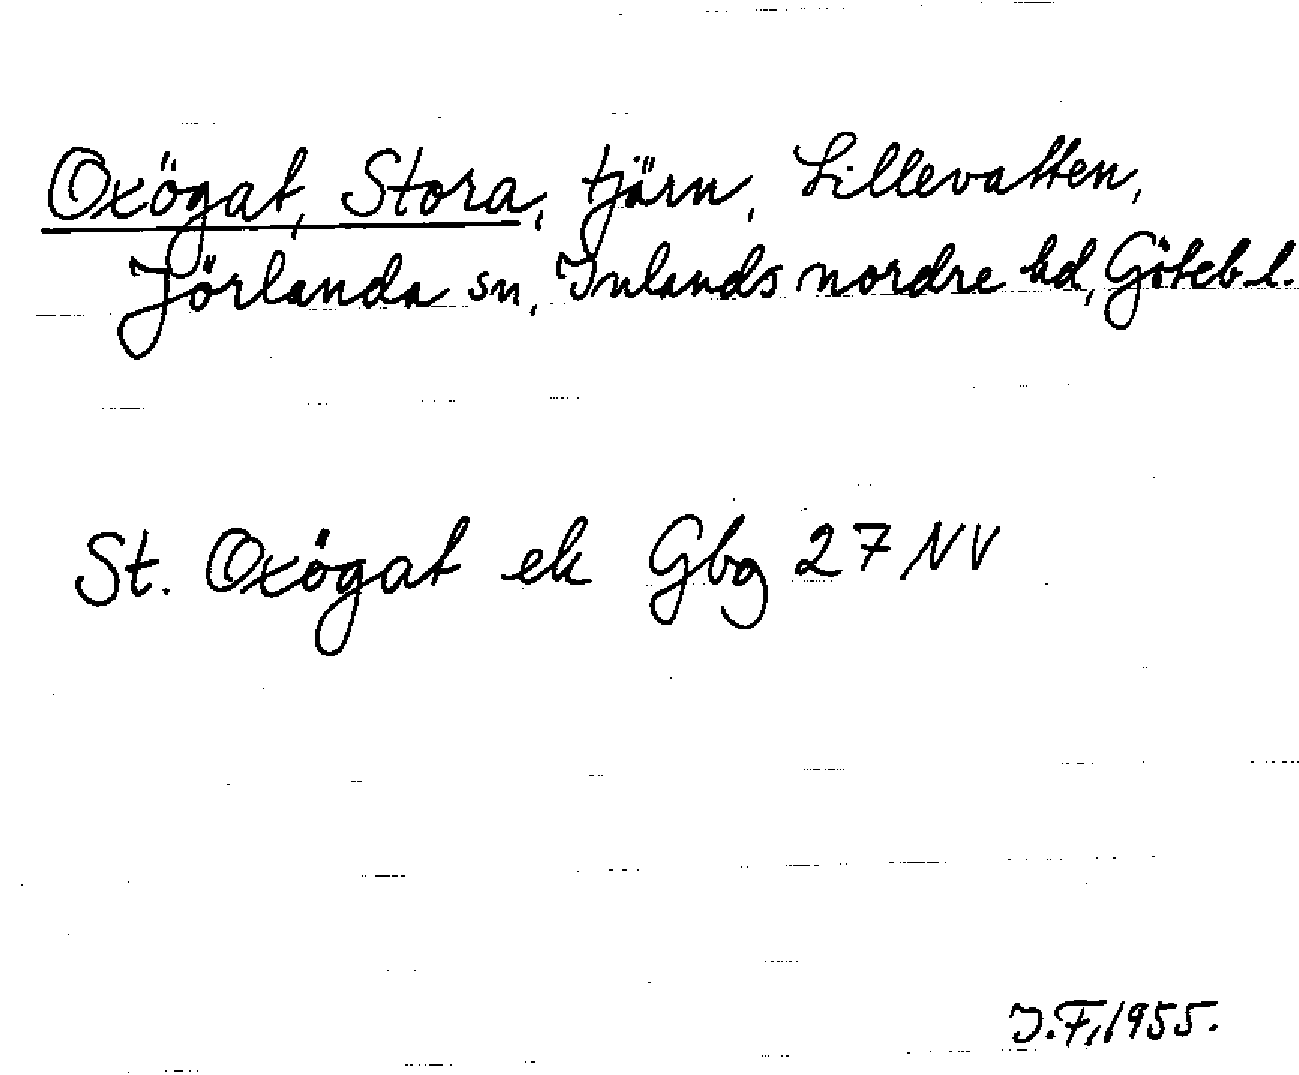 Oxögat, Stora, tjärn, Lillevatten,
Jörlanda sn, Inlands nordre hd, Göteb. l.
St. Oxögat ek Gbg 27 NV
J.F, 1955.